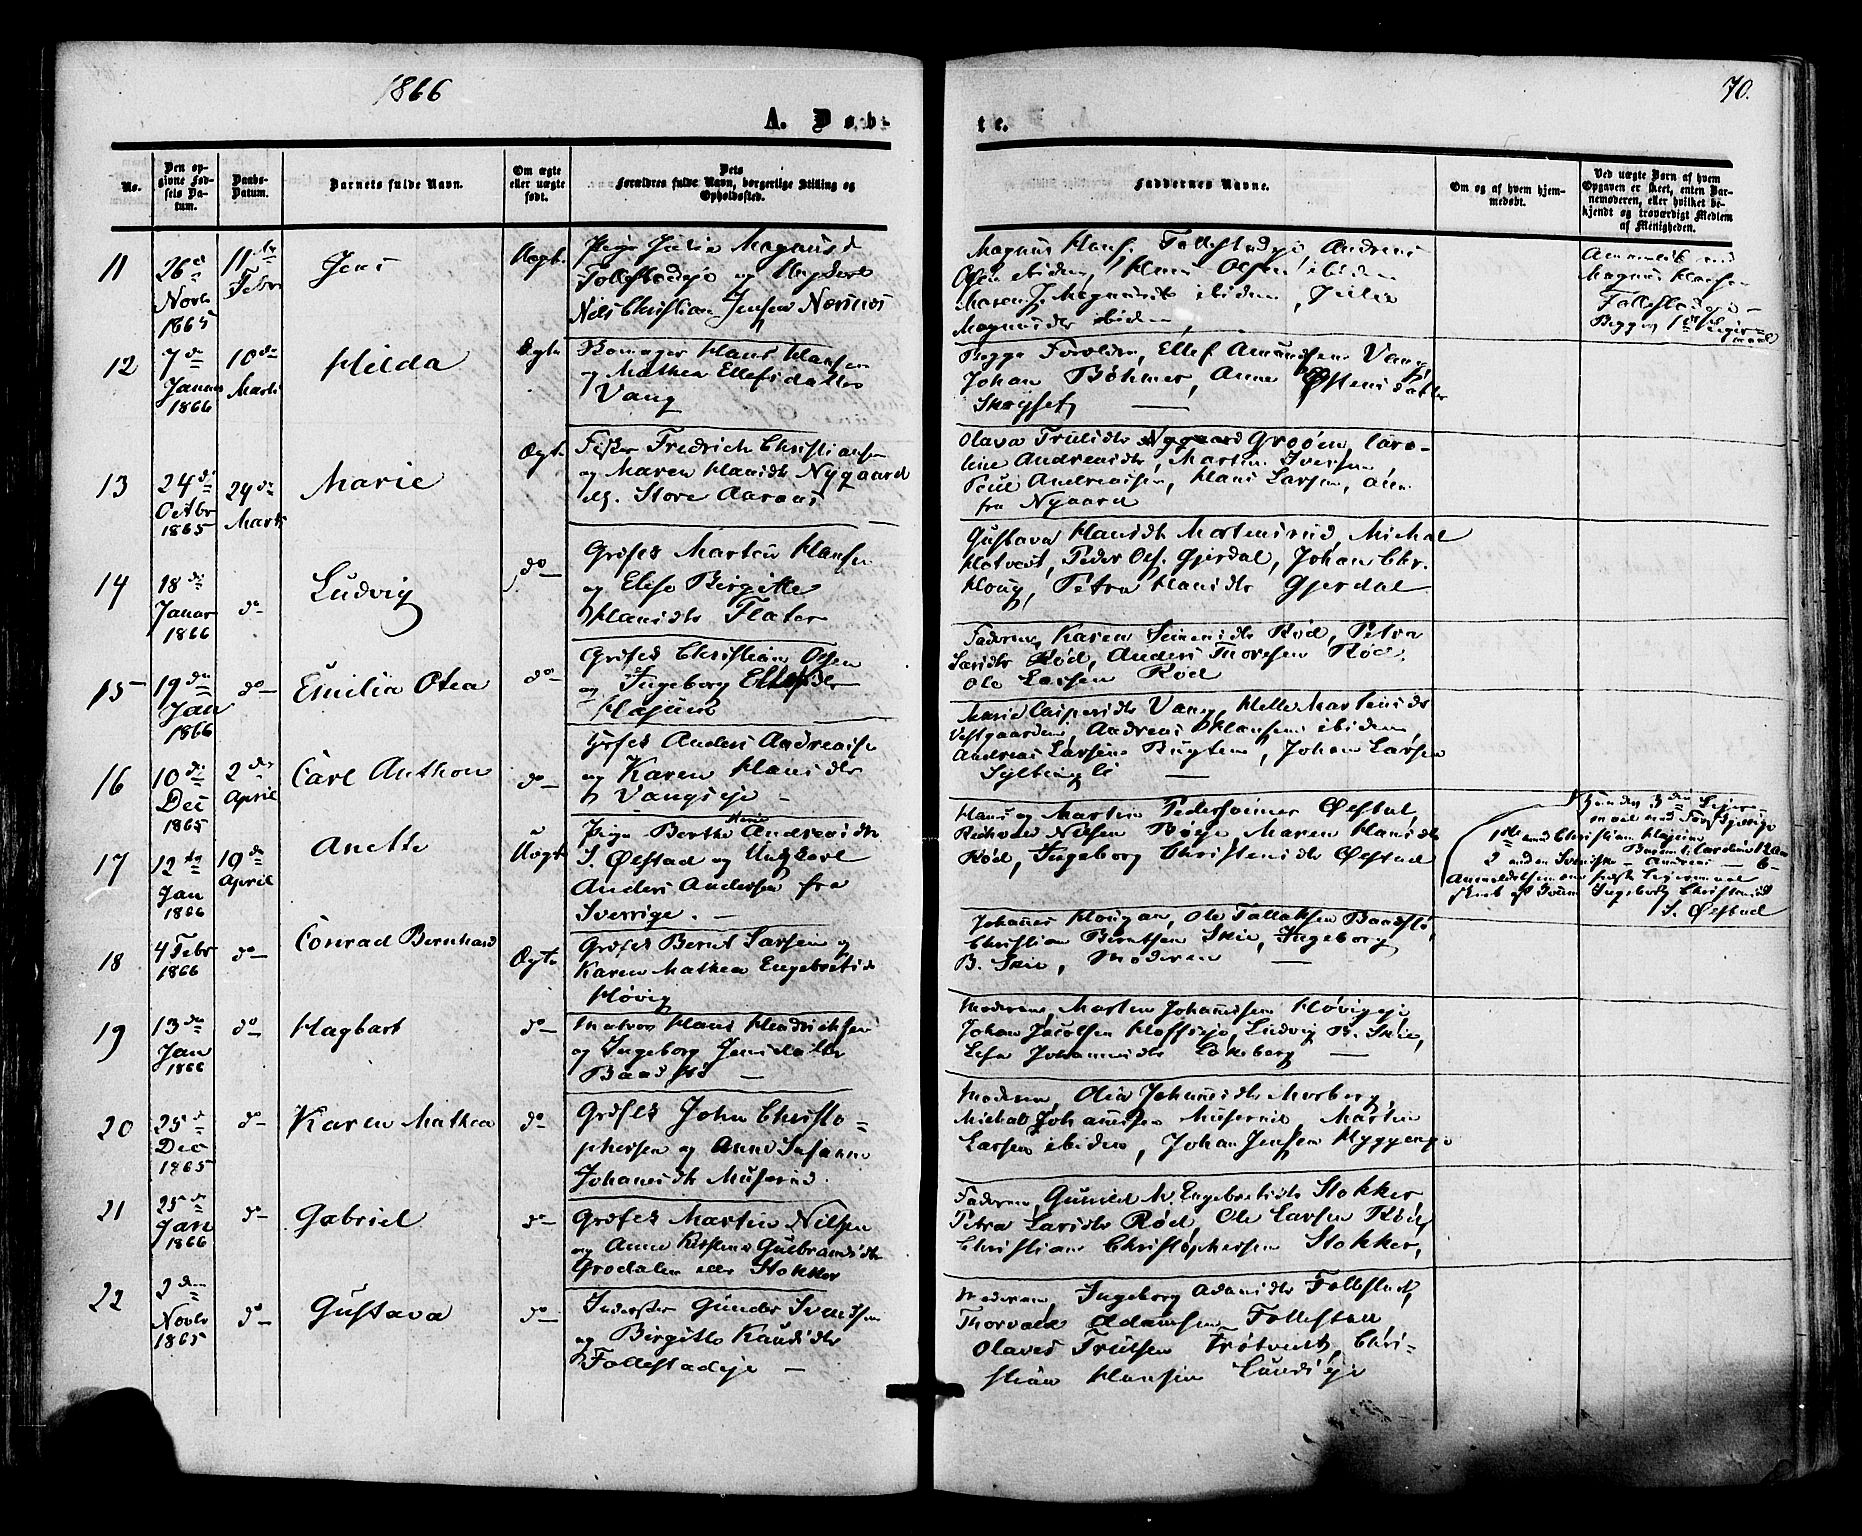 1866
70.
A. Døb-
te.
No.
Den op-
givne Fød-
sels Da-
tum.
Daabs-
Datum.
Barnets fulde Navn.
Om ægte
eller uægte
født.
Dets
Forældres fulde Navn, borgerlige Stilling og
Opholdssted.
Faddernes Navne.
Om og af hvem hjem-
medøbt.
Ved uægte Børn af hvem
Opgaven er skeet, enten Bar-
nemoderen, eller hvilket be-
kjendt og troværdigt Medlem
af Menigheden.
11
26de
Novbr
1865
11te
Febr
Jens
Uægt.
Pige Julie Magnusd
Follestadeje og Ungkarl
Nils Christian Jensen Næsnæs
Magnus Hans. Follestadeje Andreas
Olsen ibidem, Hans Olsen ibidem
Maren J. Magnusdt ibidem, Julie
Magnusdtr ibidem
Anmeldt ved
Magnus Hansen
Follestadeje -
Begges 1ste Leier-
maal
12
7de
Januar
1866
10de
Marts
Hilda
Ægte
Hans Hansen
og Mathea Ellefsdatter
Vang
Begge Foreldre, Ellef Amundsen Vang,
Johan Böhmer, Anne Østensdatter
Skøyset
13
24de
Octbr
1865
24de
Marts
Marie
Ægt.
Fisker Fredrich Christiansen
og Maren Hansdtr Nygaard
Store Aaraas
Olava Trulsdtr Nygaard Groøen, Caro-
line Andreasdtr, Martin Iversen,
Poul Andreasen, Hans Larsen, 
fra Nygaard
14
18de
Januar
1866
do
Ludvig
do
Grdfsk Martin Hansen
og Elise Birgitte
Hansdtr Flater
Gustava Hansdt Mortensrud, Michal
Hotvedt, Peder Ols. Gjerdal, Johan Chr.
Houg, Petra Hansdtr Gjerdal
15
19de
Jan
1866
do
Emilia Otea
do
Grdfsk Christian Olsen
og Ingeborg Ellefsdtr
Højum
Faderen, Karen Simensdtr Rød, Petra
Larsdtr Rød, Anders Thoresen Rød,
Ole Larsen Rød
16
10de
Dec
1865
2den
April
Carl Anthon
do
Anders Andreasen
og Karen Hansdtr
Vangseje -
Marie Caspersdtr Vang, Helle Martinsdtr
Vestgaarden, Andreas Hansen ibidem,
Andreas Larsen Bugten, Johan Larsen
Syltingli
17
12te
Jan
1866
19de
April
Anette
Uægt
Pige Berthe Marie Andreasdtr
S. Ølstad og Ungkarl
Anders Andersen fra
Sverrige. -
Hans og Martin Pedersønner Ølstad,
Nilsen Bøje Maren Hansdtr
Rød, Ingeborg Christensdtr Ølstad
3die Leier-
maal med
1ste med Christian Højum
2 anden Svenske - Andreas -
Anmeldelsen om sidste Leiermaal
skeet af Ingeborg Christensd
S. Ølstad
18
4 Febr
1866
do
Conrad Bernhard
Ægte
Grdfsk Bernt Larsen og
Karen Mathea Engebretsdr
Høvig
Johannes Hougan, Ole Tollefsen Baadstø,
Christian Berntsen Skie, Ingeborg
B. Skie, Moderen
19
13de
Jan
1866
do
Hagbart
do
Matros Hans Hendrichsen
og Ingeborg Jensdatter
Baadstø -
Moderen, Martin Johannesen Høvigeje,
Johan Jacobsen Hofseje, Ludvig B. Skie,
Johannesdtr Løkeberg
20
25de
Dec
1865
do
Karen Mathea
do
Grdfsk John Christo-
phersen og Anne Susanne
Johanesdtr Muserud.
Moderen, Olia Johannesdtr Morberg,
Michal Johannesen Muserud Martin
Larsen ibidem, Johan Jensen Hyggeneje
21
25de
Jan
1866
do
Gabriel
do
Grdfsk Martin Nilsen
og Anne Kirstine Gulbransdtr
Grodalen eller Stokker
Faderen, Gunild M. Engebretsdtr Stokker
Petra Larsdtr Rød, Ole Larsen Rød,
Christian Christophersen Stokker,
22
2den
Novbr
1865
do
Gustava
do
Inderster Gunder Svendsen
og Birgitte Knudsdtr
Follestadeje -
Moderen, Ingeborg Adamsdtr Follestad,
Thorvald Adamsen Follestad,
Olaves Trulsen Trøtvedt, Chri-
stian Hansen Lundseje